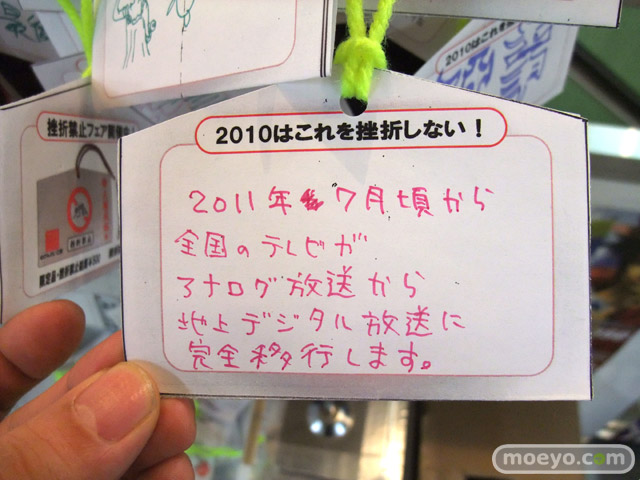 2010はこれを挫折しない!
2011年7月頃から
全国のテレビが
アナログ放送から
地上デジタル放送に
完全移行します。
挫折禁止フェア開催中
2010はこれを
moeyo.com